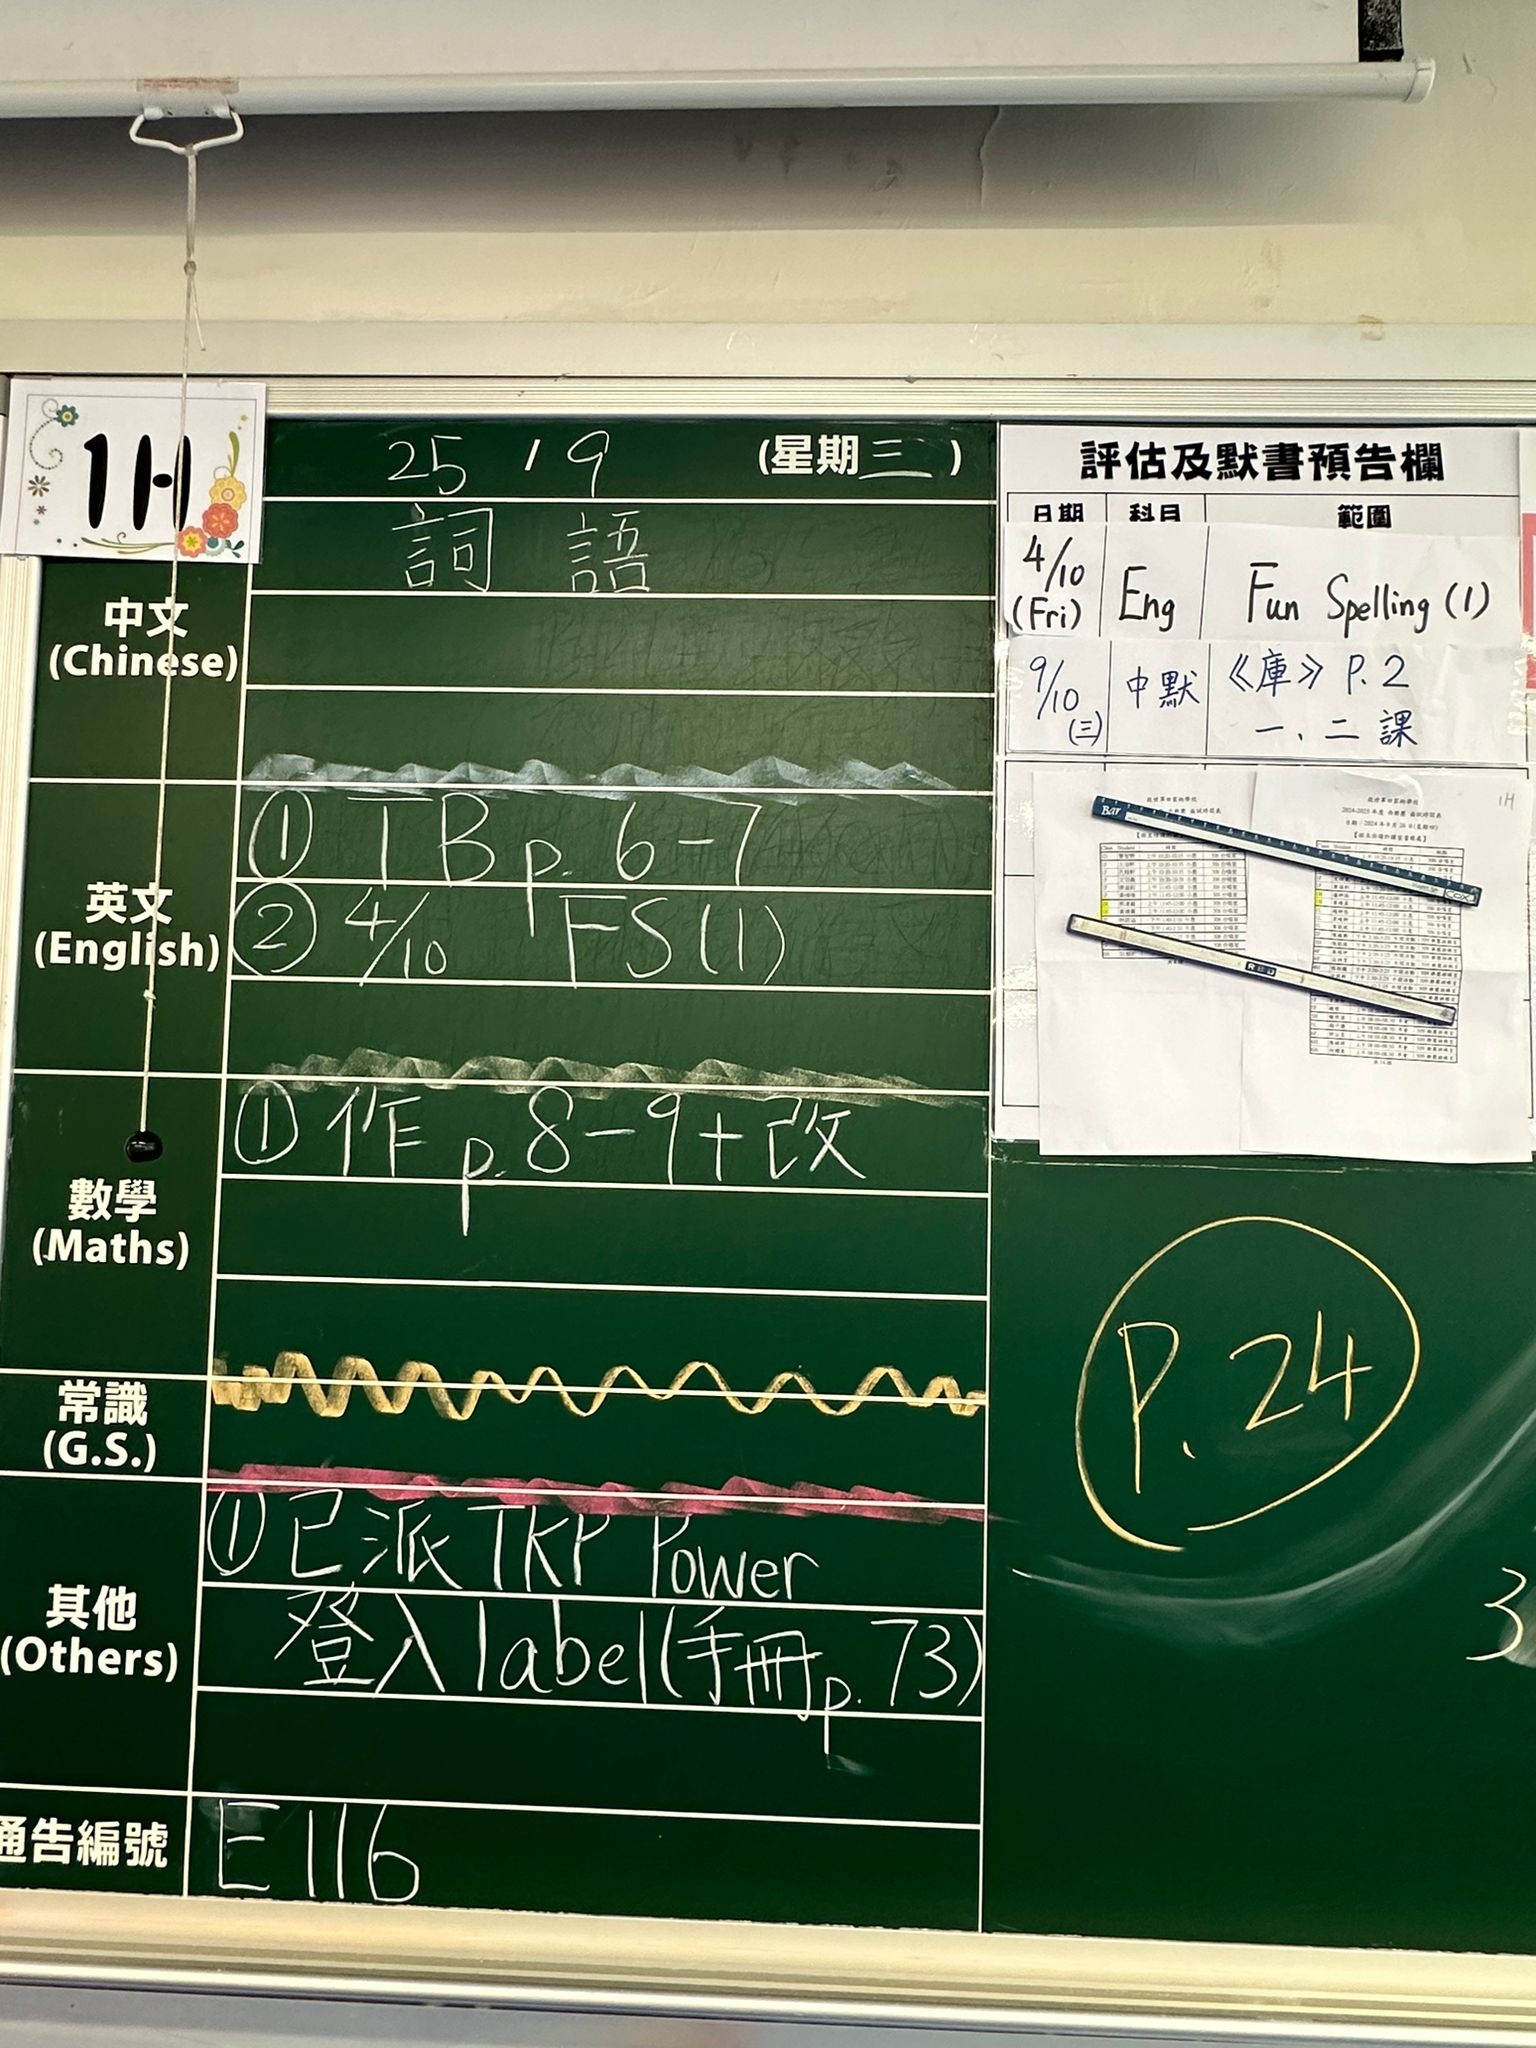 1H
25 / 9 (星期三)
詞語
中文
(Chinese)
英文
(English)
① TB p. 6-7
② 4/10 FS(1)
數學
(Maths)
① 作 p. 8-9+改
常識
(G.S.)
其他
(Others)
① 已派 TKP Power
登入 label (手冊 p. 73)
通告編號
E116
評估及默書預告欄
日期 科目 範圍
4/10 (Fri) Eng Fun Spelling (1)
9/10 (三) 中默 《庫》 P.2
一、二課
1H
P. 24
3